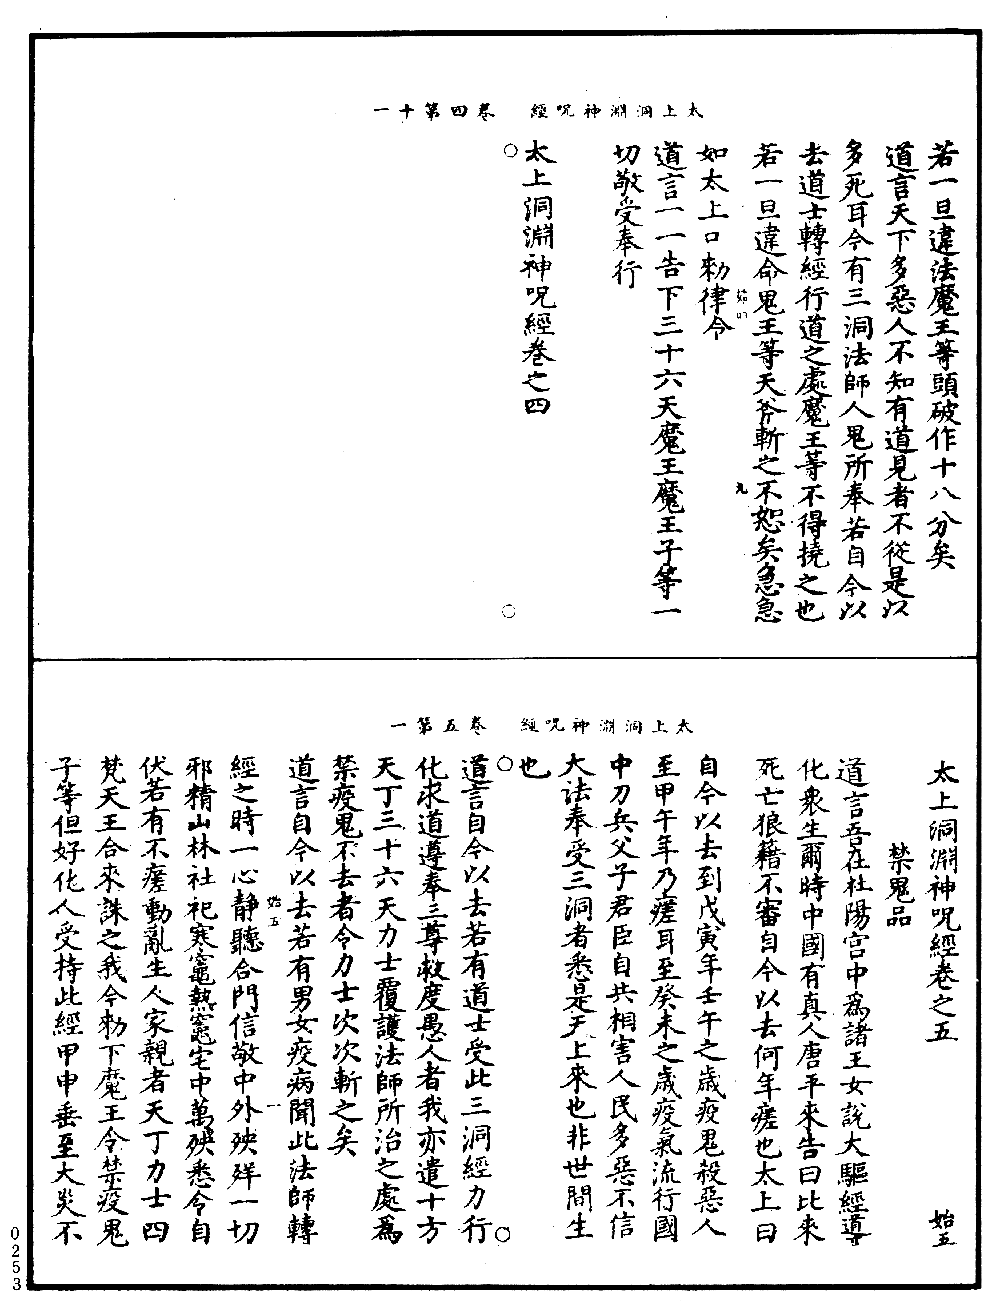 太上洞淵神呪經　卷四第十一
若一旦違法魔王等頭破作十八分矣
道言天下多惡人不知有道見者不從是以
多死耳今有三洞法師人鬼所奉若自今以
去道士轉經行道之處魔王等不得撓之也
若一旦違命鬼王等天斧斬之不恕矣急急
如太上口勑律令
道言一一告下三十六天魔王魔王子等一
切敬受奉行
太上洞淵神呪經卷之四
太上洞淵神呪經　卷五第一
太上洞淵神呪經卷之五　始五
禁鬼品
道言吾在杜陽宫中爲諸王女說大驅經導
化衆生爾時中國有真人唐平來告曰比來
死亡狼藉不審自今以去何年瘥也太上曰
自今以去到戊寅年壬午之歲疫鬼殺惡人
至甲午年乃瘥耳至癸未之歲疫氣流行國
中刀兵父子君臣自共相害人民多惡不信
大法奉受三洞者悉是天上來也非世間生
也
道言自今以去若有道士受此三洞經力行
化求道遵奉三尊救度愚人者我亦遣十方
天丁三十六天力士覆護法師所治之處爲
禁疫鬼不去者令力士次次斬之矣
道言自今以去若有男女疫病聞此法師轉
始五　一
經之時一心静聽合門信敬中外殃殚一切
邪精山林社祀寒竈熱竈宅中萬殃悉令自
伏若有不瘥動亂生人家親者天丁力士四
梵天王合來誅之我今勑下魔王令禁疫鬼
子等但好化人受持此經甲申垂至大災不
0253